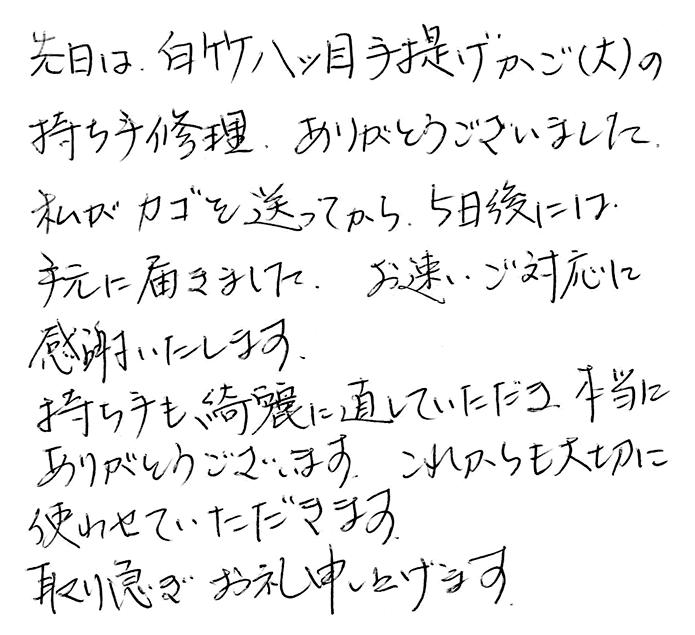 先日は、白竹八ッ目手提げかご(大)の
持ち手修理、ありがとうございました。
私がカゴを送ってから、5日後には
手元に届きました。お速いご対応に
感謝いたします。
持ち手も、綺麗に直していただき、本当に
ありがとうございます。これからも大切に
使わせていただきます。
取り急ぎお礼申し上げます。